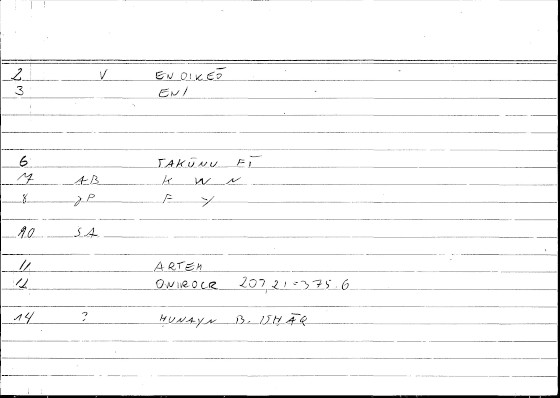 2 V ENOIKEŌ
3 ENI
6 TAKŪNU FĪ
7 AB K W N
8 JP F Y
10 SA
11 ARTEM
12 ONIROCR 207,21=375.6
14 ? ḤUNAYN B. ISḤĀQ